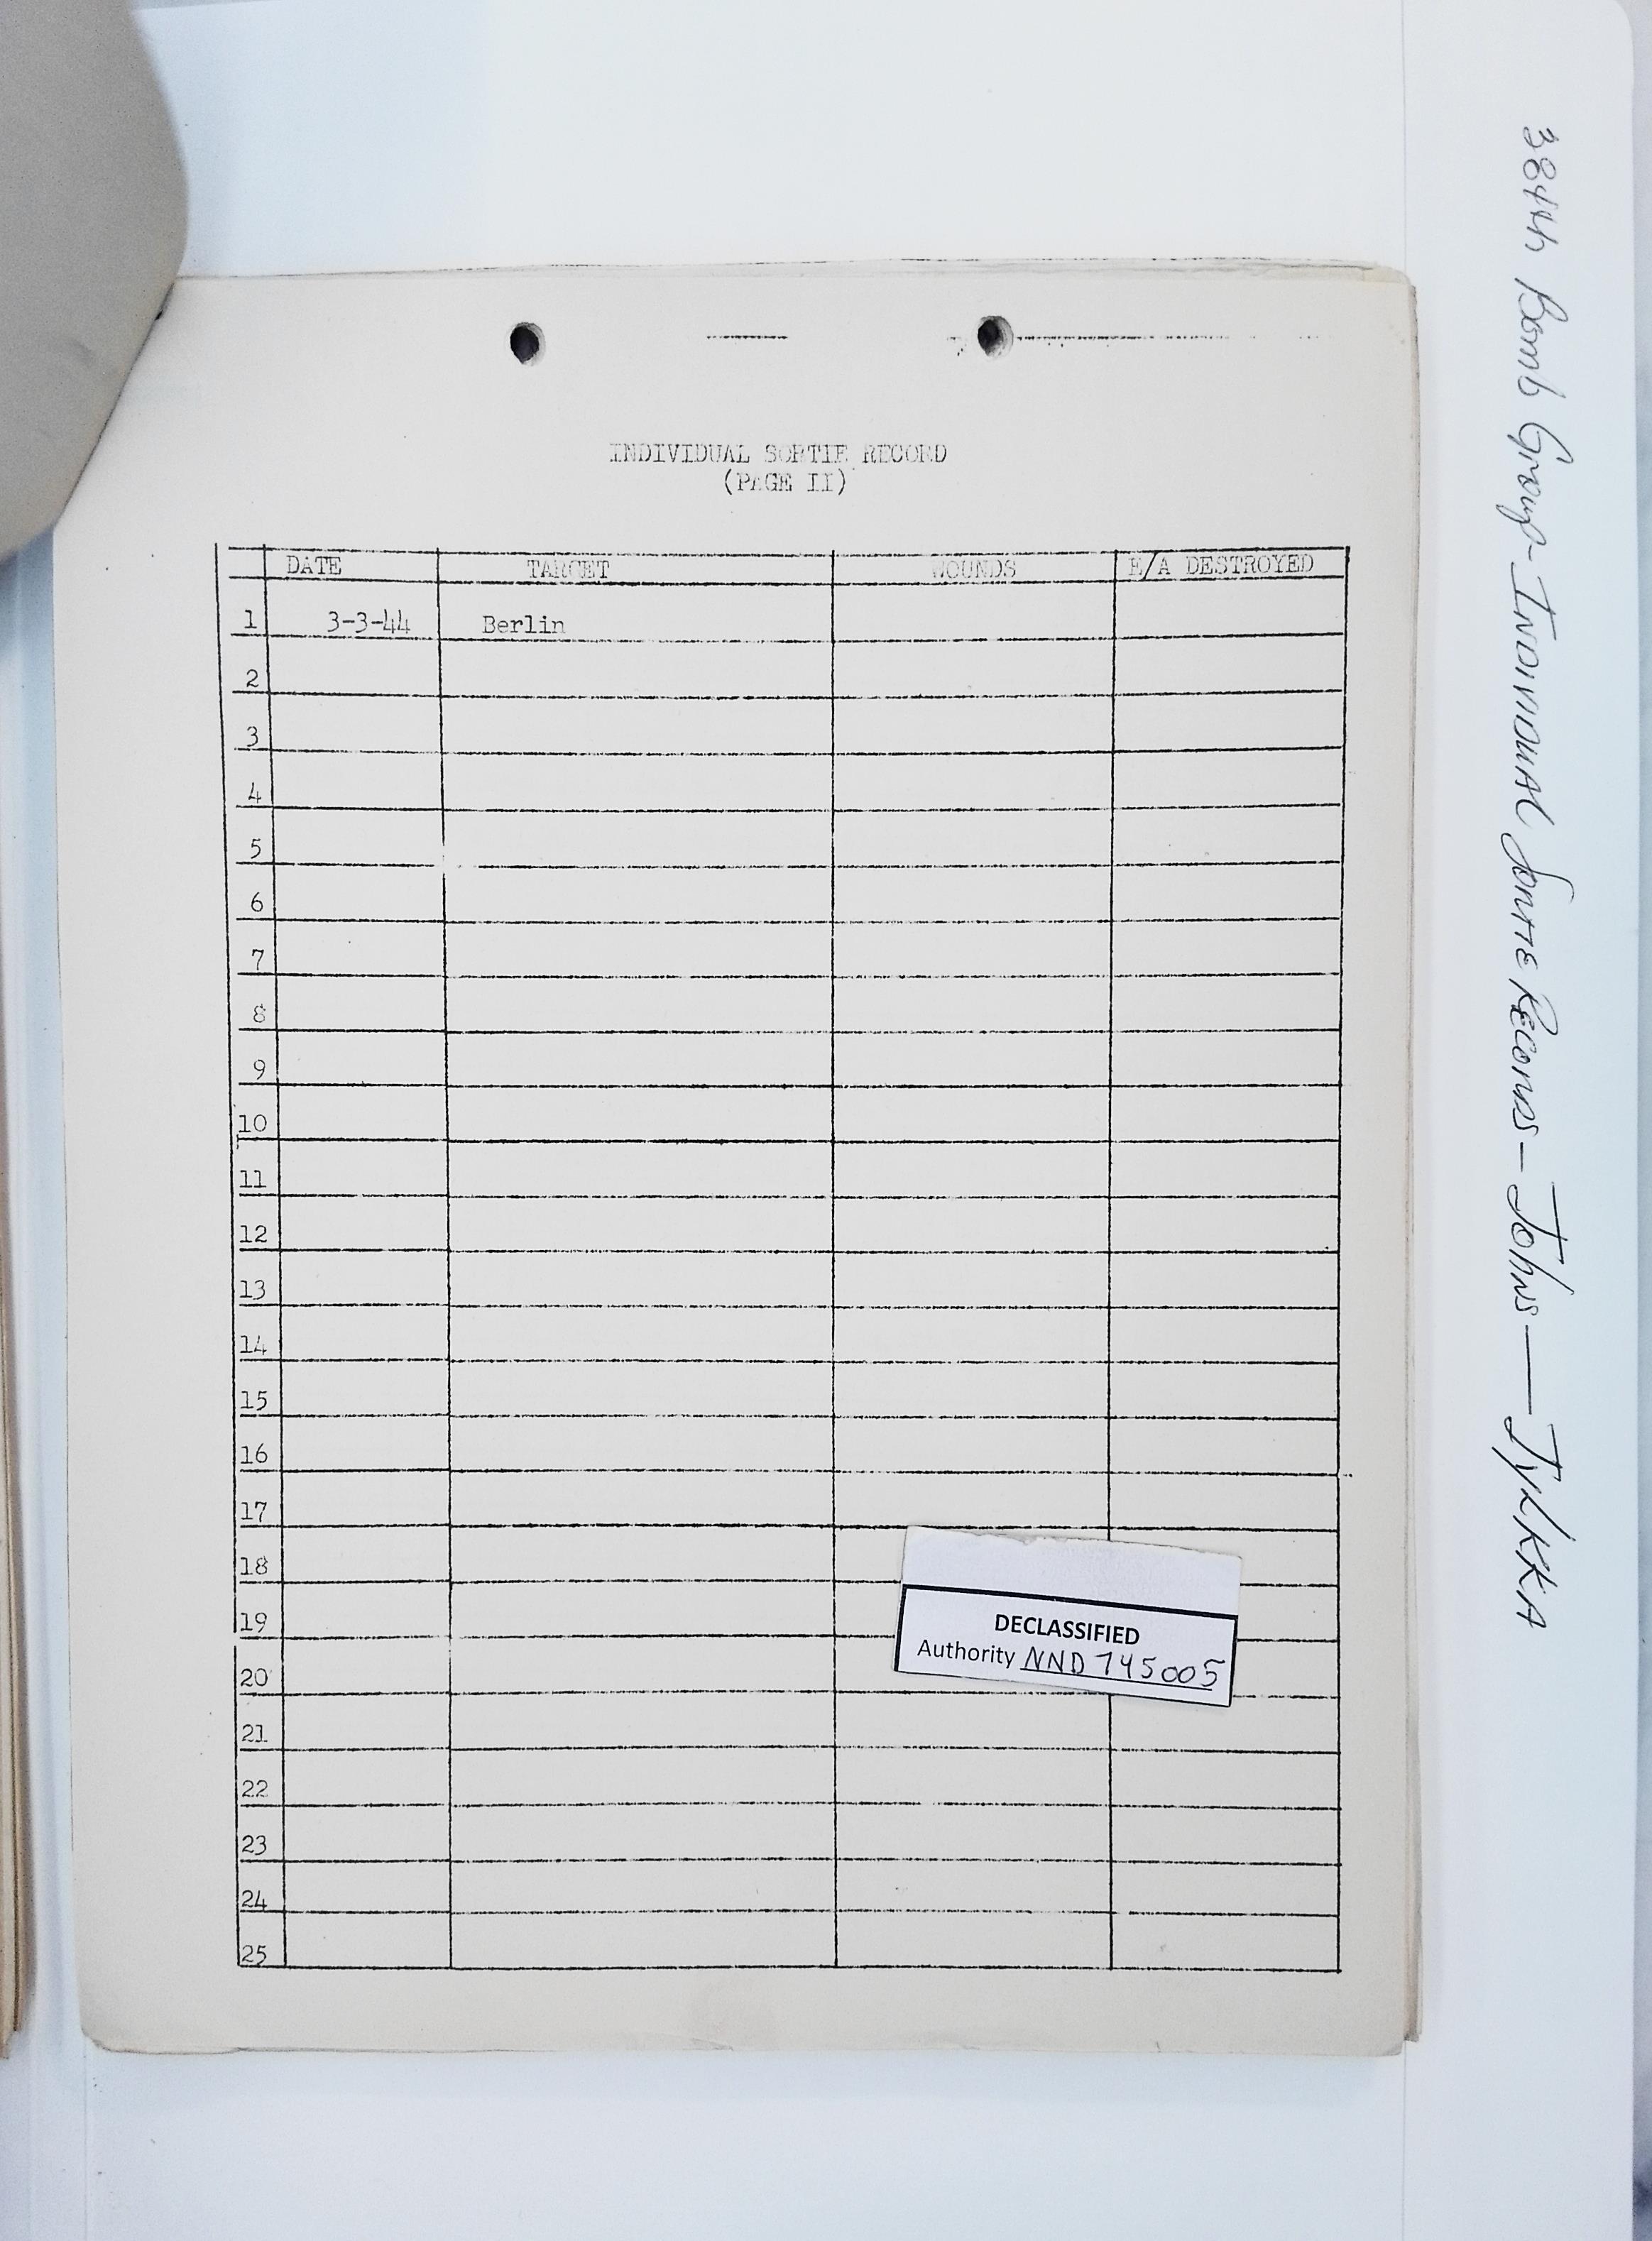 INDIVIDUAL SORTIE RECORD
(PAGE II)
DATE TARGET WOUNDS E/A DESTROYED
1 3-3-44 Berlin
2
3
4
5
6
7
8
9
10
11
12
13
14
15
16
17
18
19
20
21
22
23
24
25
DECLASSIFIED
Authority NND 745005
384th Bomb Group - Individual Sortie Records - Johns - Tylkka